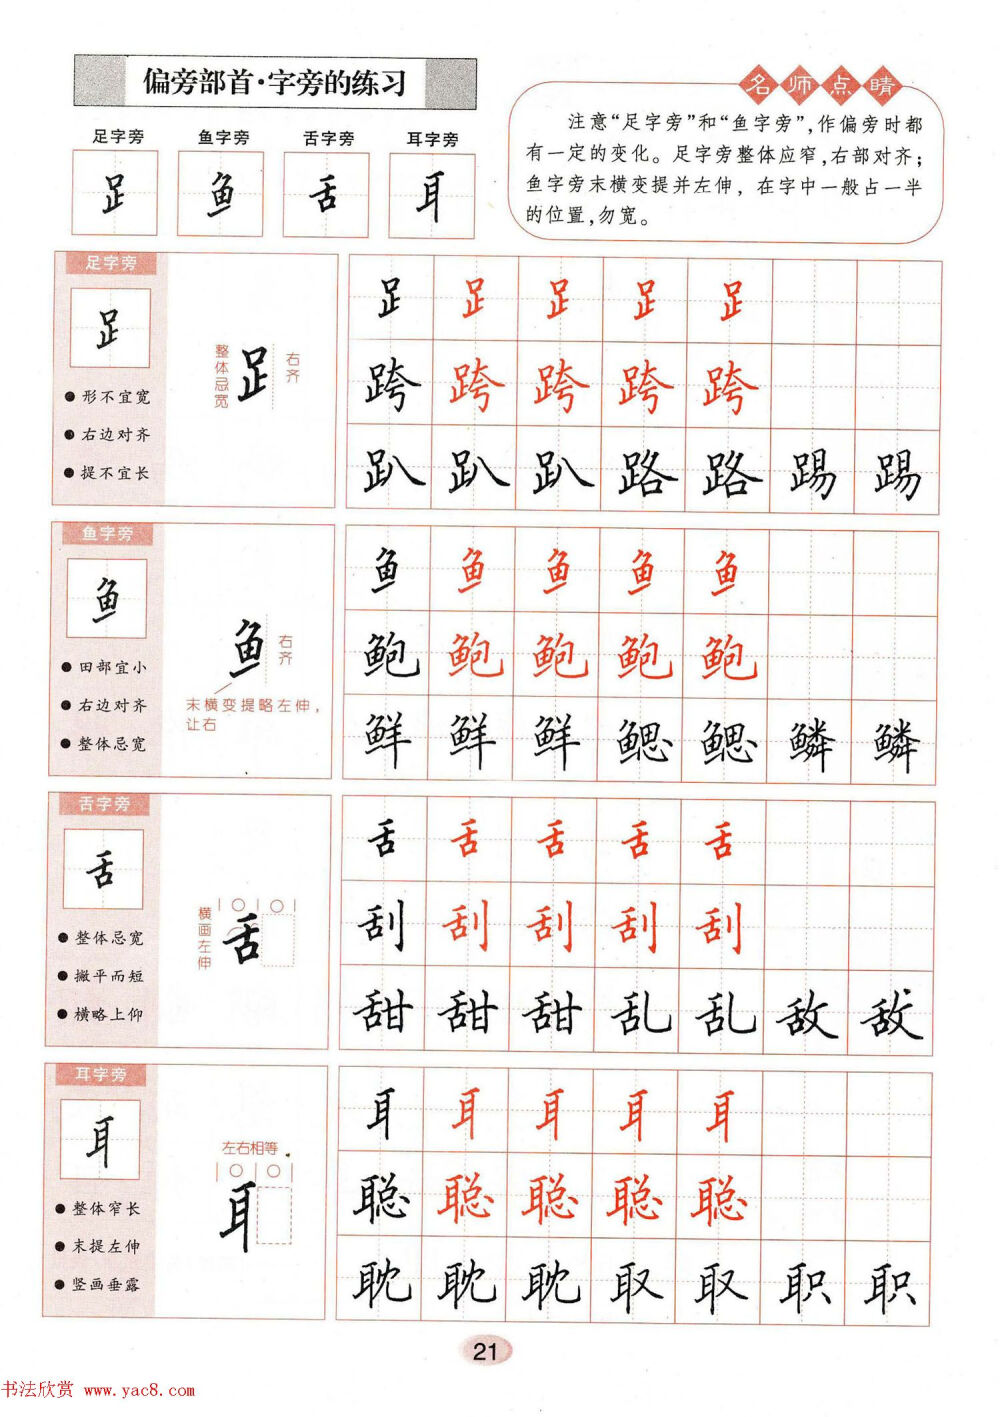 偏旁部首·字旁的练习
名师点睛
注意“足字旁”和“鱼字旁”,作偏旁时都
有一定的变化。足字旁整体应窄,右部对齐;
鱼字旁末横变提并左伸,在字中一般占一半
的位置,勿宽。
足字旁 鱼字旁 舌字旁 耳字旁
𧾷 鱼 舌 耳
足字旁
𧾷
形不宜宽
右边对齐
提不宜长
整体忌宽
𧾷
右齐
𧾷 𧾷 𧾷 𧾷 𧾷
跨 跨 跨 跨 跨
趴 趴 趴 路 路 踢 踢
鱼字旁
鱼
田部宜小
右边对齐
整体忌宽
鱼
右齐
末横变提略左伸,
让右
鱼 鱼 鱼 鱼 鱼
鲍 鲍 鲍 鲍 鲍
鲜 鲜 鲜 鳃 鳃 鳞 鳞
舌字旁
舌
整体忌宽
撇平而短
横略上仰
横画左伸
舌
舌 舌 舌 舌 舌
刮 刮 刮 刮 刮
甜 甜 甜 乱 乱 敌 敌
耳字旁
耳
整体窄长
末提左伸
竖画垂露
左右相等
耳
耳 耳 耳 耳 耳
聪 聪 聪 聪 聪
耽 耽 耽 取 取 职 职
21
书法欣赏 www.yac8.com